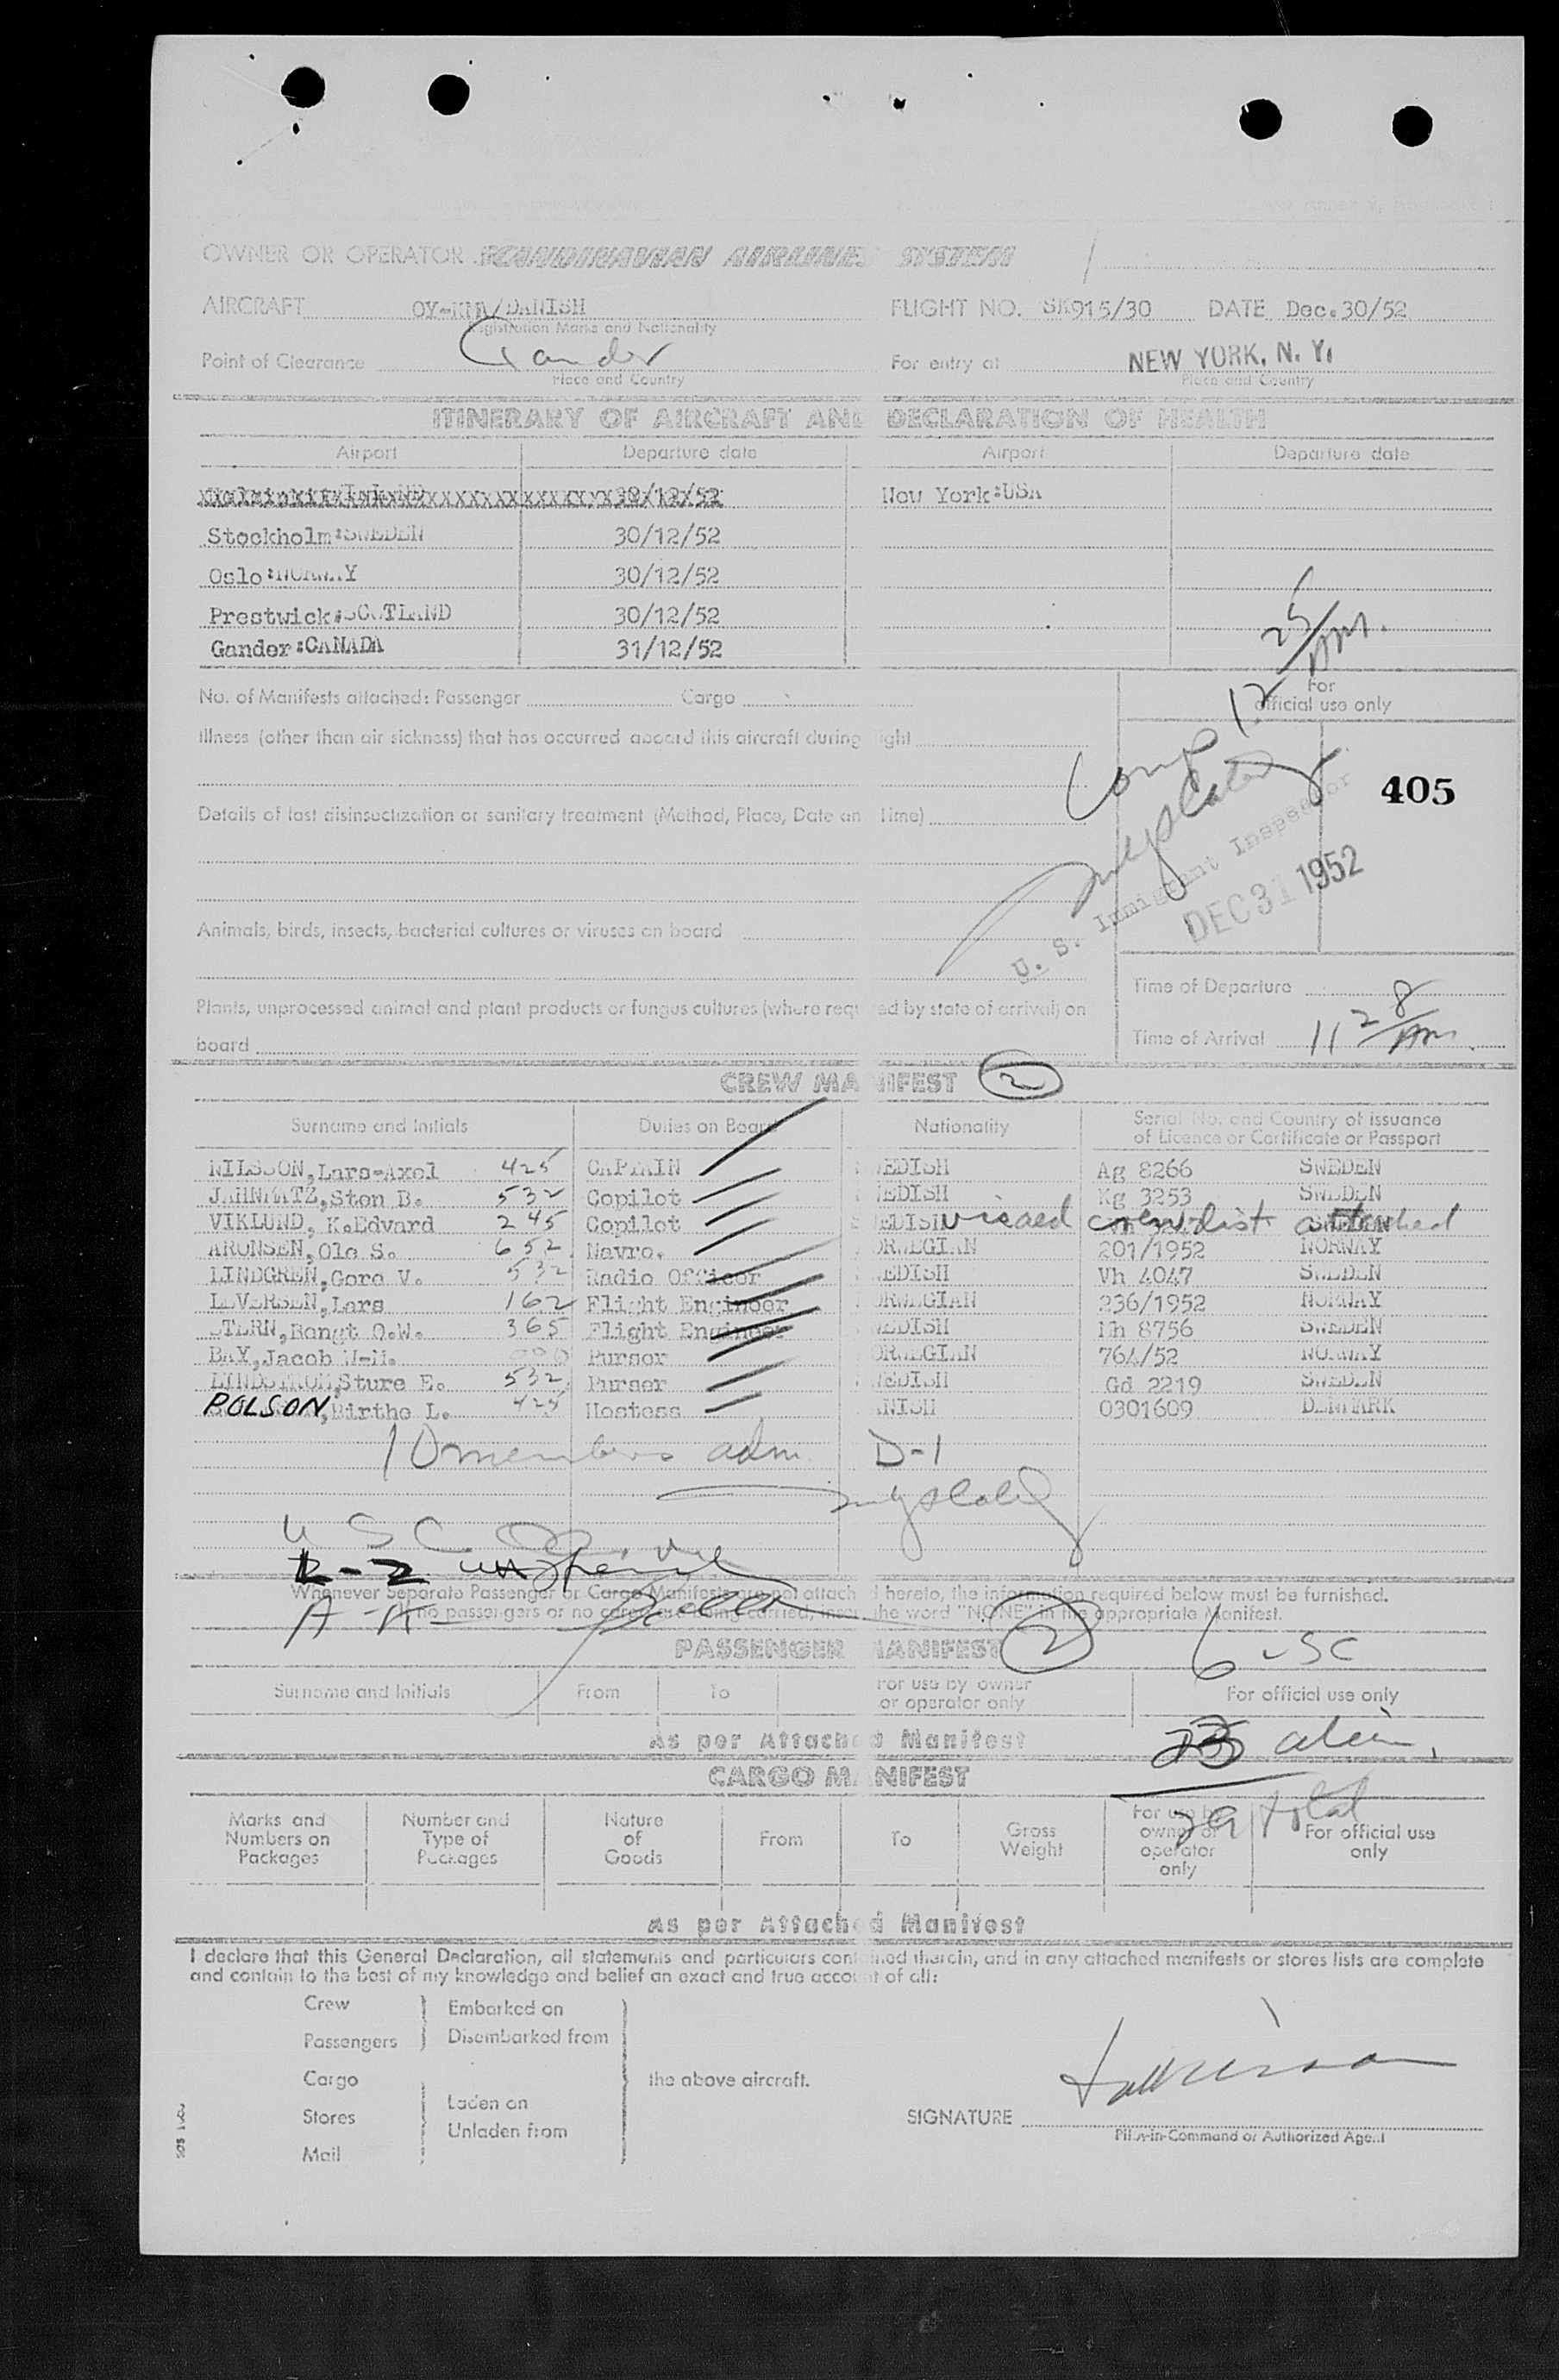 OWNER OR OPERATOR SCANDINAVIAN AIRLINES SYSTEM
AIRCRAFT /DANISH FLIGHT NO. SK915/30 DATE Dec. 30/52
Registration Marks and Nationality
Point of Clearance Gander For entry at NEW YORK, N. Y.
Place and Country Place and Country
ITINERARY OF AIRCRAFT AND DECLARATION OF HEALTH
Airport Departure date Airport Departure date
30/12/52 New York:USA
Stockholm:SWEDEN 30/12/52
Oslo:NORWAY 30/12/52
Prestwick:SCOTLAND 30/12/52
Gander:CANADA 31/12/52
12 25/AM.
No. of Manifests attached: Passenger Cargo
For official use only
Illness (other than air sickness) that has occurred aboard this aircraft during ight
Comp
405
Details of last disinsectization or sanitary treatment (Method, Place, Date an Time)
U. S. Immigrant Inspector
DEC 31 1952
Animals, birds, insects, bacterial cultures or viruses on board
Time of Departure
Plants, unprocessed animal and plant products or fungus cultures (where requ ed by state of arrival) on
board
Time of Arrival 11 28/AM.
CREW MANIFEST 2
Surname and Initials Duties on Board Nationality Serial No. and Country of issuance
of Licence or Certificate or Passport
NILSSON, Lars-Axel 425 CAPTAIN WEDISH Ag 8266 SWEDEN
Sten B. 532 Copilot WEDISH Kg 3253 SWEDEN
VIKLUND, K.Edvard 245 Copilot SWEDISH visaed crew list attached
ARONSEN, Ole S. 652 Navro. ORWEGIAN 201/1952 NORWAY
LINDGREN, Gore V. 532 Radio Officer WEDISH Vh 4047 SWEDEN
LEVERSEN, Lars 162 Flight Engineer ORWEGIAN 236/1952 NORWAY
STERN, Bengt O.W. 365 Flight Engineer WEDISH Hh 8756 SWEDEN
BAY, Jacob Purser ORWEGIAN 764/52 NORWAY
LINDSTROM, Sture E. 532 Purser WEDISH Gd 2219 SWEDEN
POLSON, Birthe L. 425 Hostess ANISH 0301609 DENMARK
10 members adm D-1
U S C
Whenever Separate Passenger or Cargo Manifests are not attach d hereto, the information required below must be furnished.
no passengers or no cargo are being carried, insert the word "NONE" in the appropriate Manifest.
PASSENGER MANIFEST 2 6 USC
Surname and Initials From To For use by owner
or operator only For official use only
As per Attached Manifest
23 alien
CARGO MANIFEST
29 total
Marks and Numbers on Packages Number and Type of Packages Nature of Goods From To Gross Weight For use by owner or operator only For official use only
As per Attached Manifest
I declare that this General Declaration, all statements and particulars contained therein, and in any attached manifests or stores lists are complete
and contain to the best of my knowledge and belief an exact and true account of all:
Crew Embarked on
Passengers Disembarked from
Cargo the above aircraft.
Stores Laden on
Unladen from
Mail
SIGNATURE
Pilot-in-Command or Authorized Agent